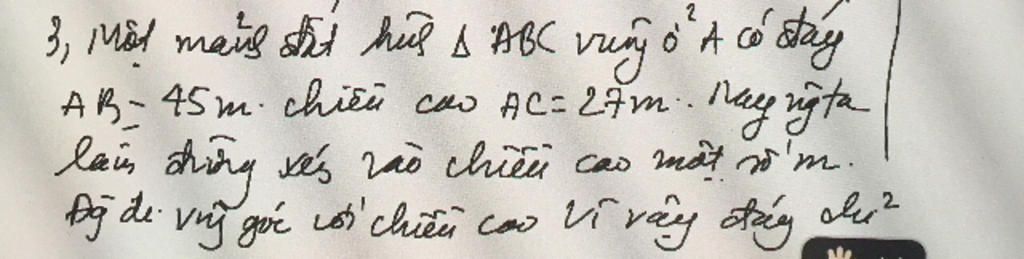 3, Một mảnh đất hình Δ ABC vuông ở A có đáy
AB = 45m. chiều cao AC = 27m. Nay ngta
làm đường xén vào chiều cao một số m.
vuông góc với chiều cao Vì vậy đáy